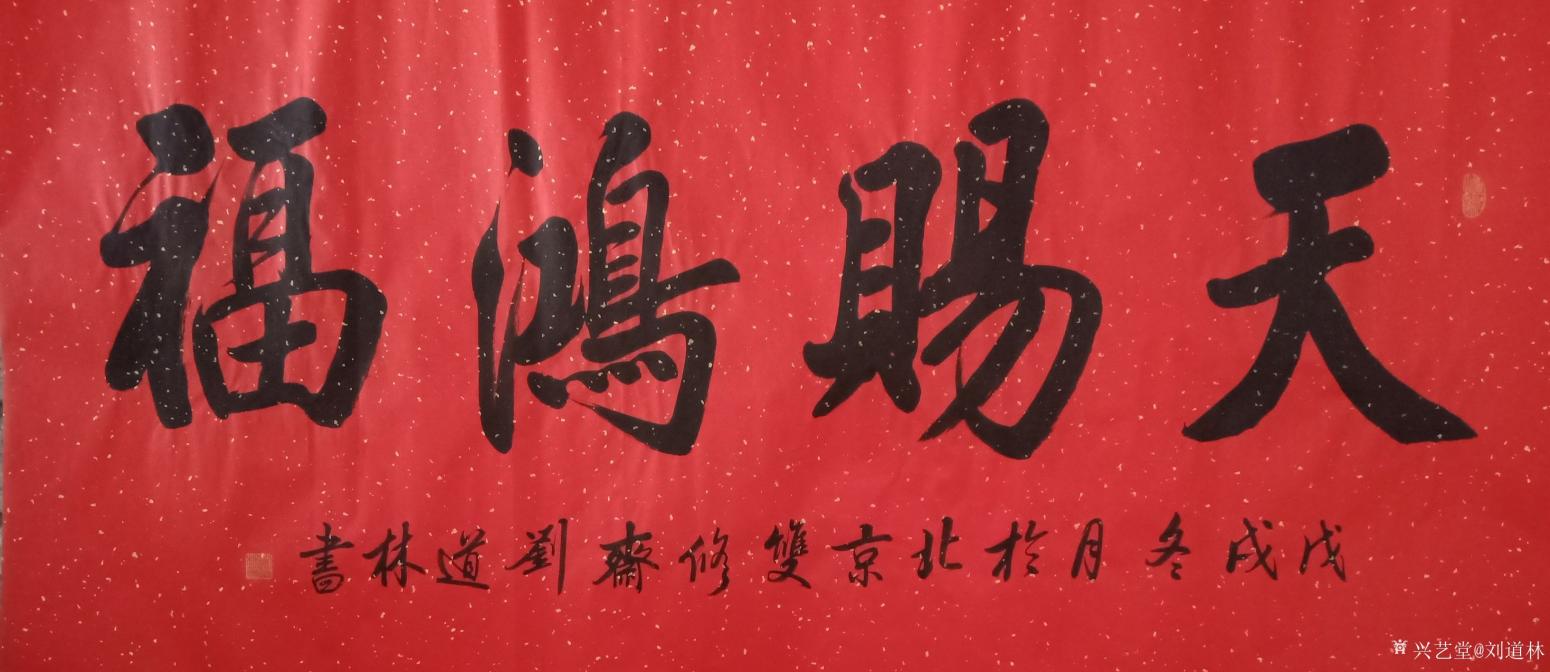 天賜鴻福
戊戌冬月於北京雙修齋劉道林書
兴艺堂@刘道林